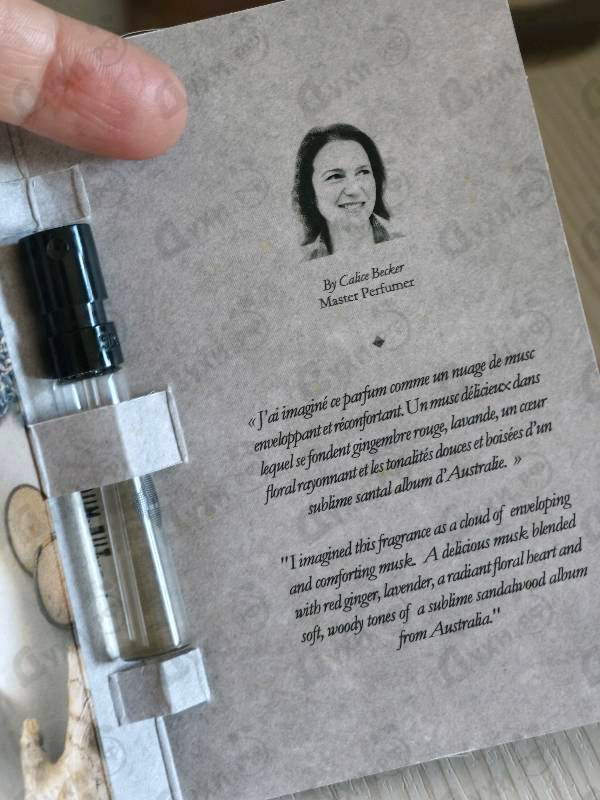 By Calice Becker
Master Perfumer
« J'ai imaginé ce parfum comme un nuage de musc
enveloppant et réconfortant. Un musc délicieux dans
lequel se fondent gingembre rouge, lavande, un cœur
floral rayonnant et les tonalités douces et boisées d'un
sublime santal album d'Australie. »
"I imagined this fragrance as a cloud of enveloping
and comforting musk. A delicious musk blended
with red ginger, lavender, a radiant floral heart and
soft, woody tones of a sublime sandalwood album
from Australia."
Духи.рф